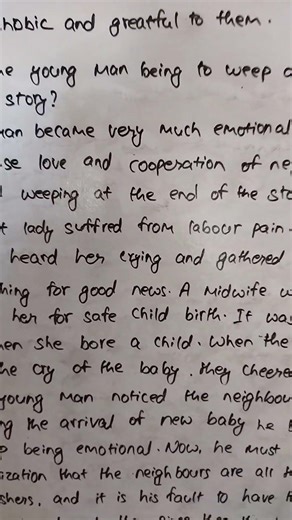 hobic and greatful to them.
he young man being to weep
story?
an became very much emotional
se love and cooperation of ne
weeping at the end of the sto
t lady suffred from labour pain.
heard her crying and gathered
hing for good news. A midwife w
her for safe child birth. It was
en she bore a child. When the
he cry of the baby, they cheere
young man noticed the neighbou
ng the arrival of new baby he
being emotional. Now, he must
ization that the neighbours are all
shers, and it is his fault to have h